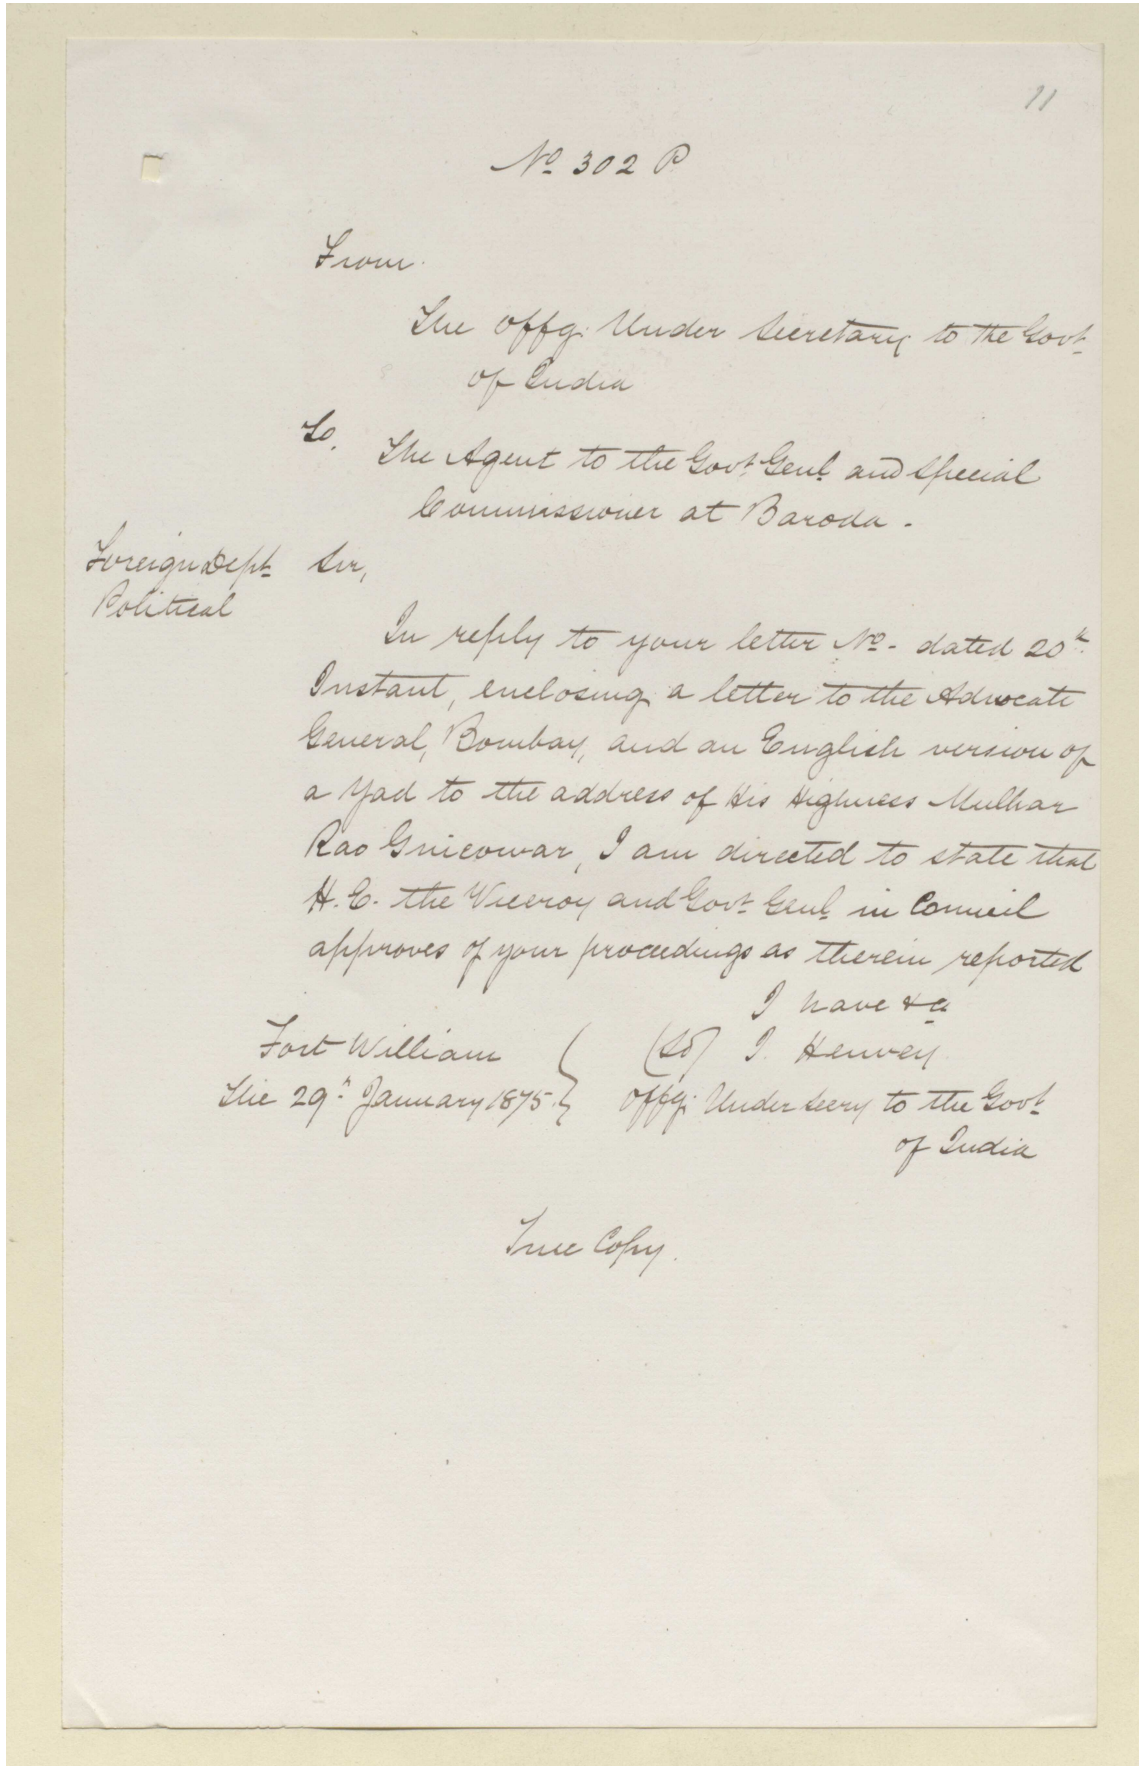 11
No. 302 P
From.
The offg. Under Secretary to the Govt.
of India
To.
The Agent to the Govt. Genl. and Special
Commissioner at Baroda -
Foreign Dept.
Political
Sir,
In reply to your letter No. - dated 20th.
Instant, enclosing a letter to the Advocate
General, Bombay, and an English version of
a Yad to the address of His Highness Mulhar
Rao Guicowar, I am directed to state that
H. E. the Viceroy and Govt. Genl. in Council
approves of your proceedings as therein reported
I have &a
Fort William
The 29th. January 1875.
(Sd) J. Henvey.
offg. Under Secry to the Govt.
of India
True Copy.